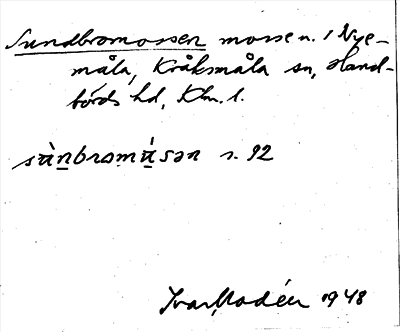 Sundbromossen mosse n. i Nye-
måla, Kråksmåla sn, Hand-
börds hd, Klm. l.
s. 92
Ivar Modéer 1948